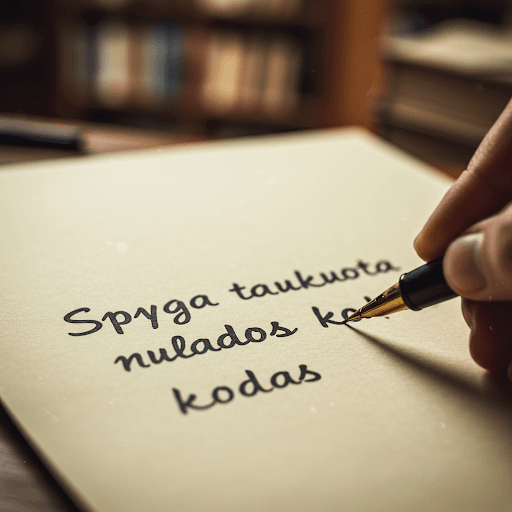 Spyga taukuota
nulados
kodas